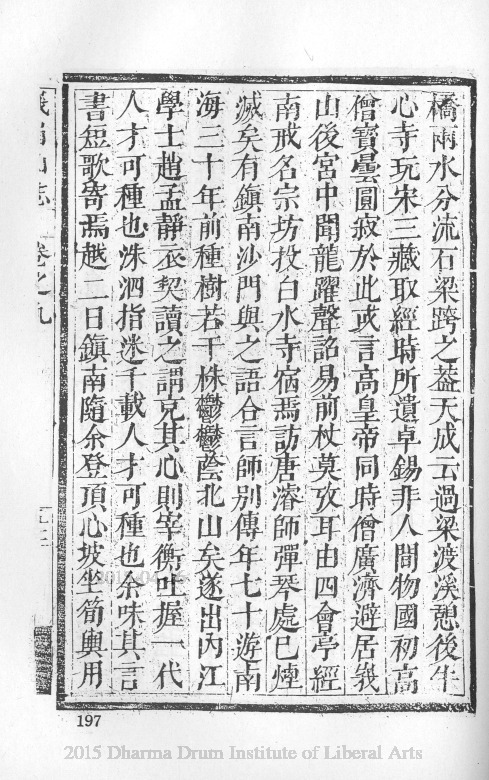 橋兩水分流石梁跨之葢天成云過梁渡溪憩後牛
心寺玩宋三藏取經時所遺卓錫非人間物國初高
僧寶曇圓寂於此或言高皇帝同時僧廣濟避居峩
山後宮中聞龍躍聲詔易前杖莫攷耳由四會亭經
南戒名宗坊投白水寺宿焉訪唐濬師彈琴處已煙
滅矣有鎮南沙門與之語合言師別傳年七十遊南
海三十年前種樹若干株鬱鬱蔭北山矣遂出內江
學士趙孟靜衣契讀之謂克其心則宰衡吐握一代
人才可種也洙泗指迷千載人才可種也余味其言
書短歌寄焉越二日鎮南隨余登頂心坡坐筍輿用
峩眉山志 卷之九
197
2015 Dharma Drum Institute of Liberal Arts